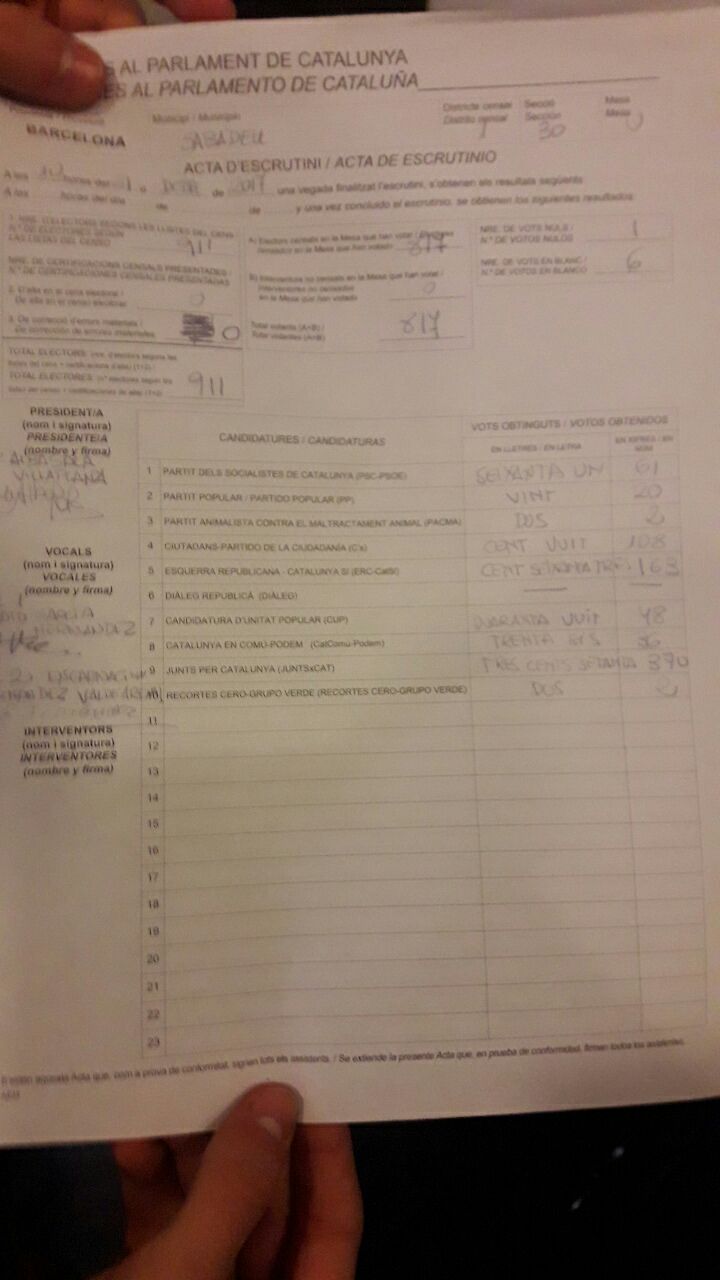 S AL PARLAMENT DE CATALUNYA
ES AL PARLAMENTO DE CATALUÑA
Municipi / Municipio
Districte censal Secció Mesa
Distrito censal Sección Mesa
BARCELONA SABADELL 1 30 U
ACTA D'ESCRUTINI / ACTA DE ESCRUTINIO
A les hores del 21 de 2017 una vegada finalitzat l'escrutini, s'obtenen els resultats següents:
A las horas del día de de y una vez concluido el escrutinio, se obtienen los siguientes resultados:
1. NRE. D'ELECTORS SEGONS LES LLISTES DEL CENS
N.º DE ELECTORES SEGÚN
LAS LISTAS DEL CENSO 911
NRE. DE CERTIFICACIONS CENSALS PRESENTADES /
N.º DE CERTIFICACIONES CENSALES PRESENTADAS
0
3. De correcció d'errors materials /
De corrección de errores materiales 0
TOTAL ELECTORS
TOTAL ELECTORES
911
A) Electors censats en la Mesa que han votat /
817
B) Interventors no censats en la Mesa que han votat /
Interventores no censados
en la Mesa que han votado 0
Total votants (A+B) /
Total votantes (A+B) 817
NRE. DE VOTS NULS /
N.º DE VOTOS NULOS 1
NRE. DE VOTS EN BLANC /
N.º DE VOTOS EN BLANCO 6
PRESIDENT/A
(nom i signatura)
PRESIDENTE/A
(nombre y firma)
VOCALS
(nom i signatura)
VOCALES
(nombre y firma)
GARCÍA
HERNANDEZ
INTERVENTORS
(nom i signatura)
INTERVENTORES
(nombre y firma)
CANDIDATURES / CANDIDATURAS VOTS OBTINGUTS / VOTOS OBTENIDOS
EN LLETRES / EN LETRA EN XIFRES / EN NÚM.
1 PARTIT DELS SOCIALISTES DE CATALUNYA (PSC-PSOE) SEIXANTA UN 61
2 PARTIT POPULAR / PARTIDO POPULAR (PP) VINT 20
3 PARTIT ANIMALISTA CONTRA EL MALTRACTAMENT ANIMAL (PACMA) DOS 2
4 CIUTADANS-PARTIDO DE LA CIUDADANÍA (C's) CENT VUIT 108
5 ESQUERRA REPUBLICANA - CATALUNYA SÍ (ERC-CatSí) CENT SEIXANTA TRES 163
6 DIÀLEG REPUBLICÀ (DIÀLEG)
7 CANDIDATURA D'UNITAT POPULAR (CUP) QUARANTA VUIT 48
8 CATALUNYA EN COMÚ-PODEM (CatComú-Podem) TRENTA SIS 36
9 JUNTS PER CATALUNYA (JUNTSxCAT) TRES CENTS SETANTA 370
10 RECORTES CERO-GRUPO VERDE (RECORTES CERO-GRUPO VERDE) DOS 2
11
12
13
14
15
16
17
18
19
20
21
22
23
aquesta Acta que, com a prova de conformitat, signen tots els assistents. / Se extiende la presente Acta que, en prueba de conformidad, firman todos los asistentes.